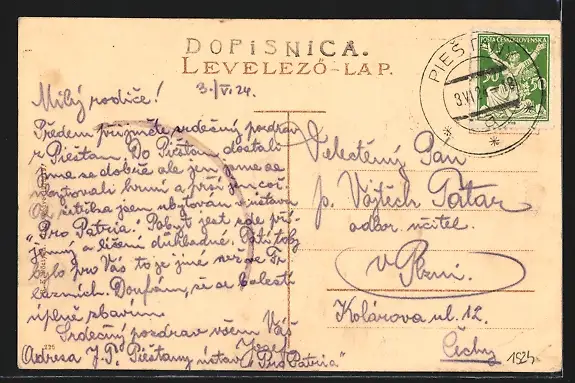 DOPISNICA.
LEVELEZŐ-LAP.
POŠTA ČESKOSLOVENSKÁ
50 50
PIEŠŤ
3 VI 24
3./VI 24.
Milý rodiče!
Předem přijměte srdečný pozdrav
z Pieštan. Do Pieštan dostali
jsme se dobře ale jen jsme se
hrmí a prší
jsem ubytován v ústavu
"Pro Patria". Pobyt jest zde pří-
jemný a léčení důkladné. Také toby
bylo pro Vás to je jiné než ve
Doufám, že se bolesti
úplně zbavím.
Srdečný pozdrav všem Váš
Josef
Adresa J.T. Pieštany ústav "Pro Patria"
Velectěný Pan
p. Vojtěch Tatar
odbor. učitel.
v Plzni.
Kolárova ul. 12.
Čechy
1524